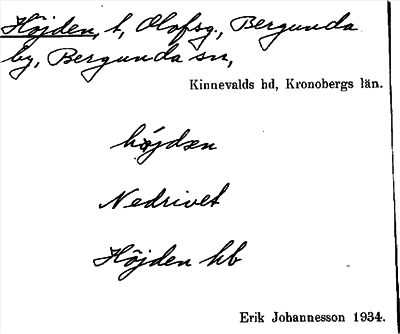 Höjden, t, Olofsg, Bergunda
by, Bergunda sn,
Kinnevalds hd, Kronobergs län.
höjdæn
Nedrivet
Höjden hb
Erik Johannesson 1934.